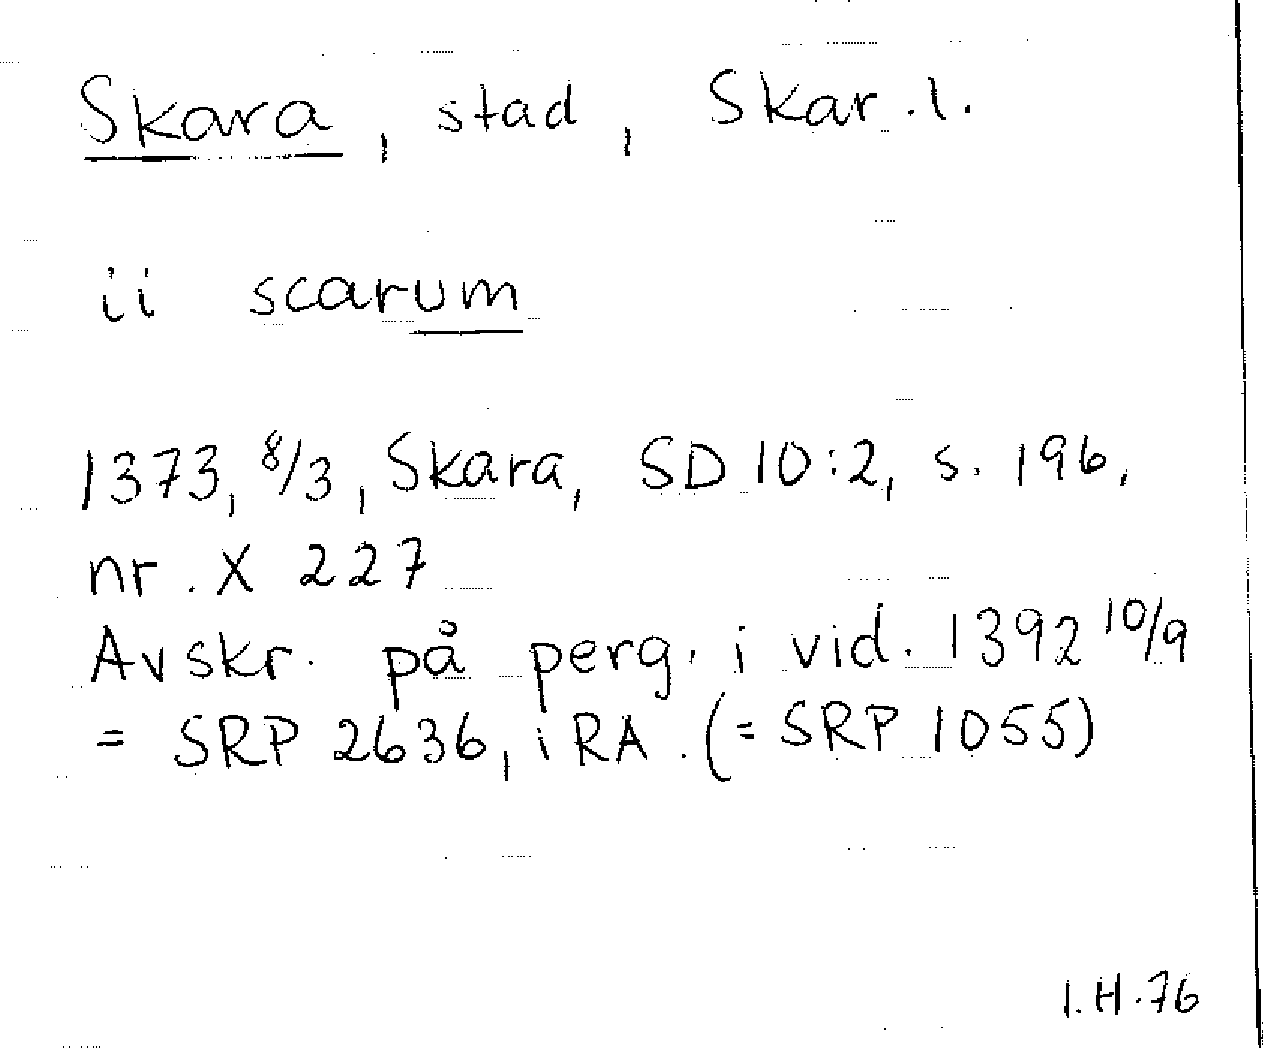 Skara, stad, Skar.l.
ii scarum
1373, 8/3, Skara, SD 10:2, s. 196,
nr. X 227
Avskr. på perg. i vid. 1392 10/9
= SRP 2636, i RA. (= SRP 1055)
I.H.76